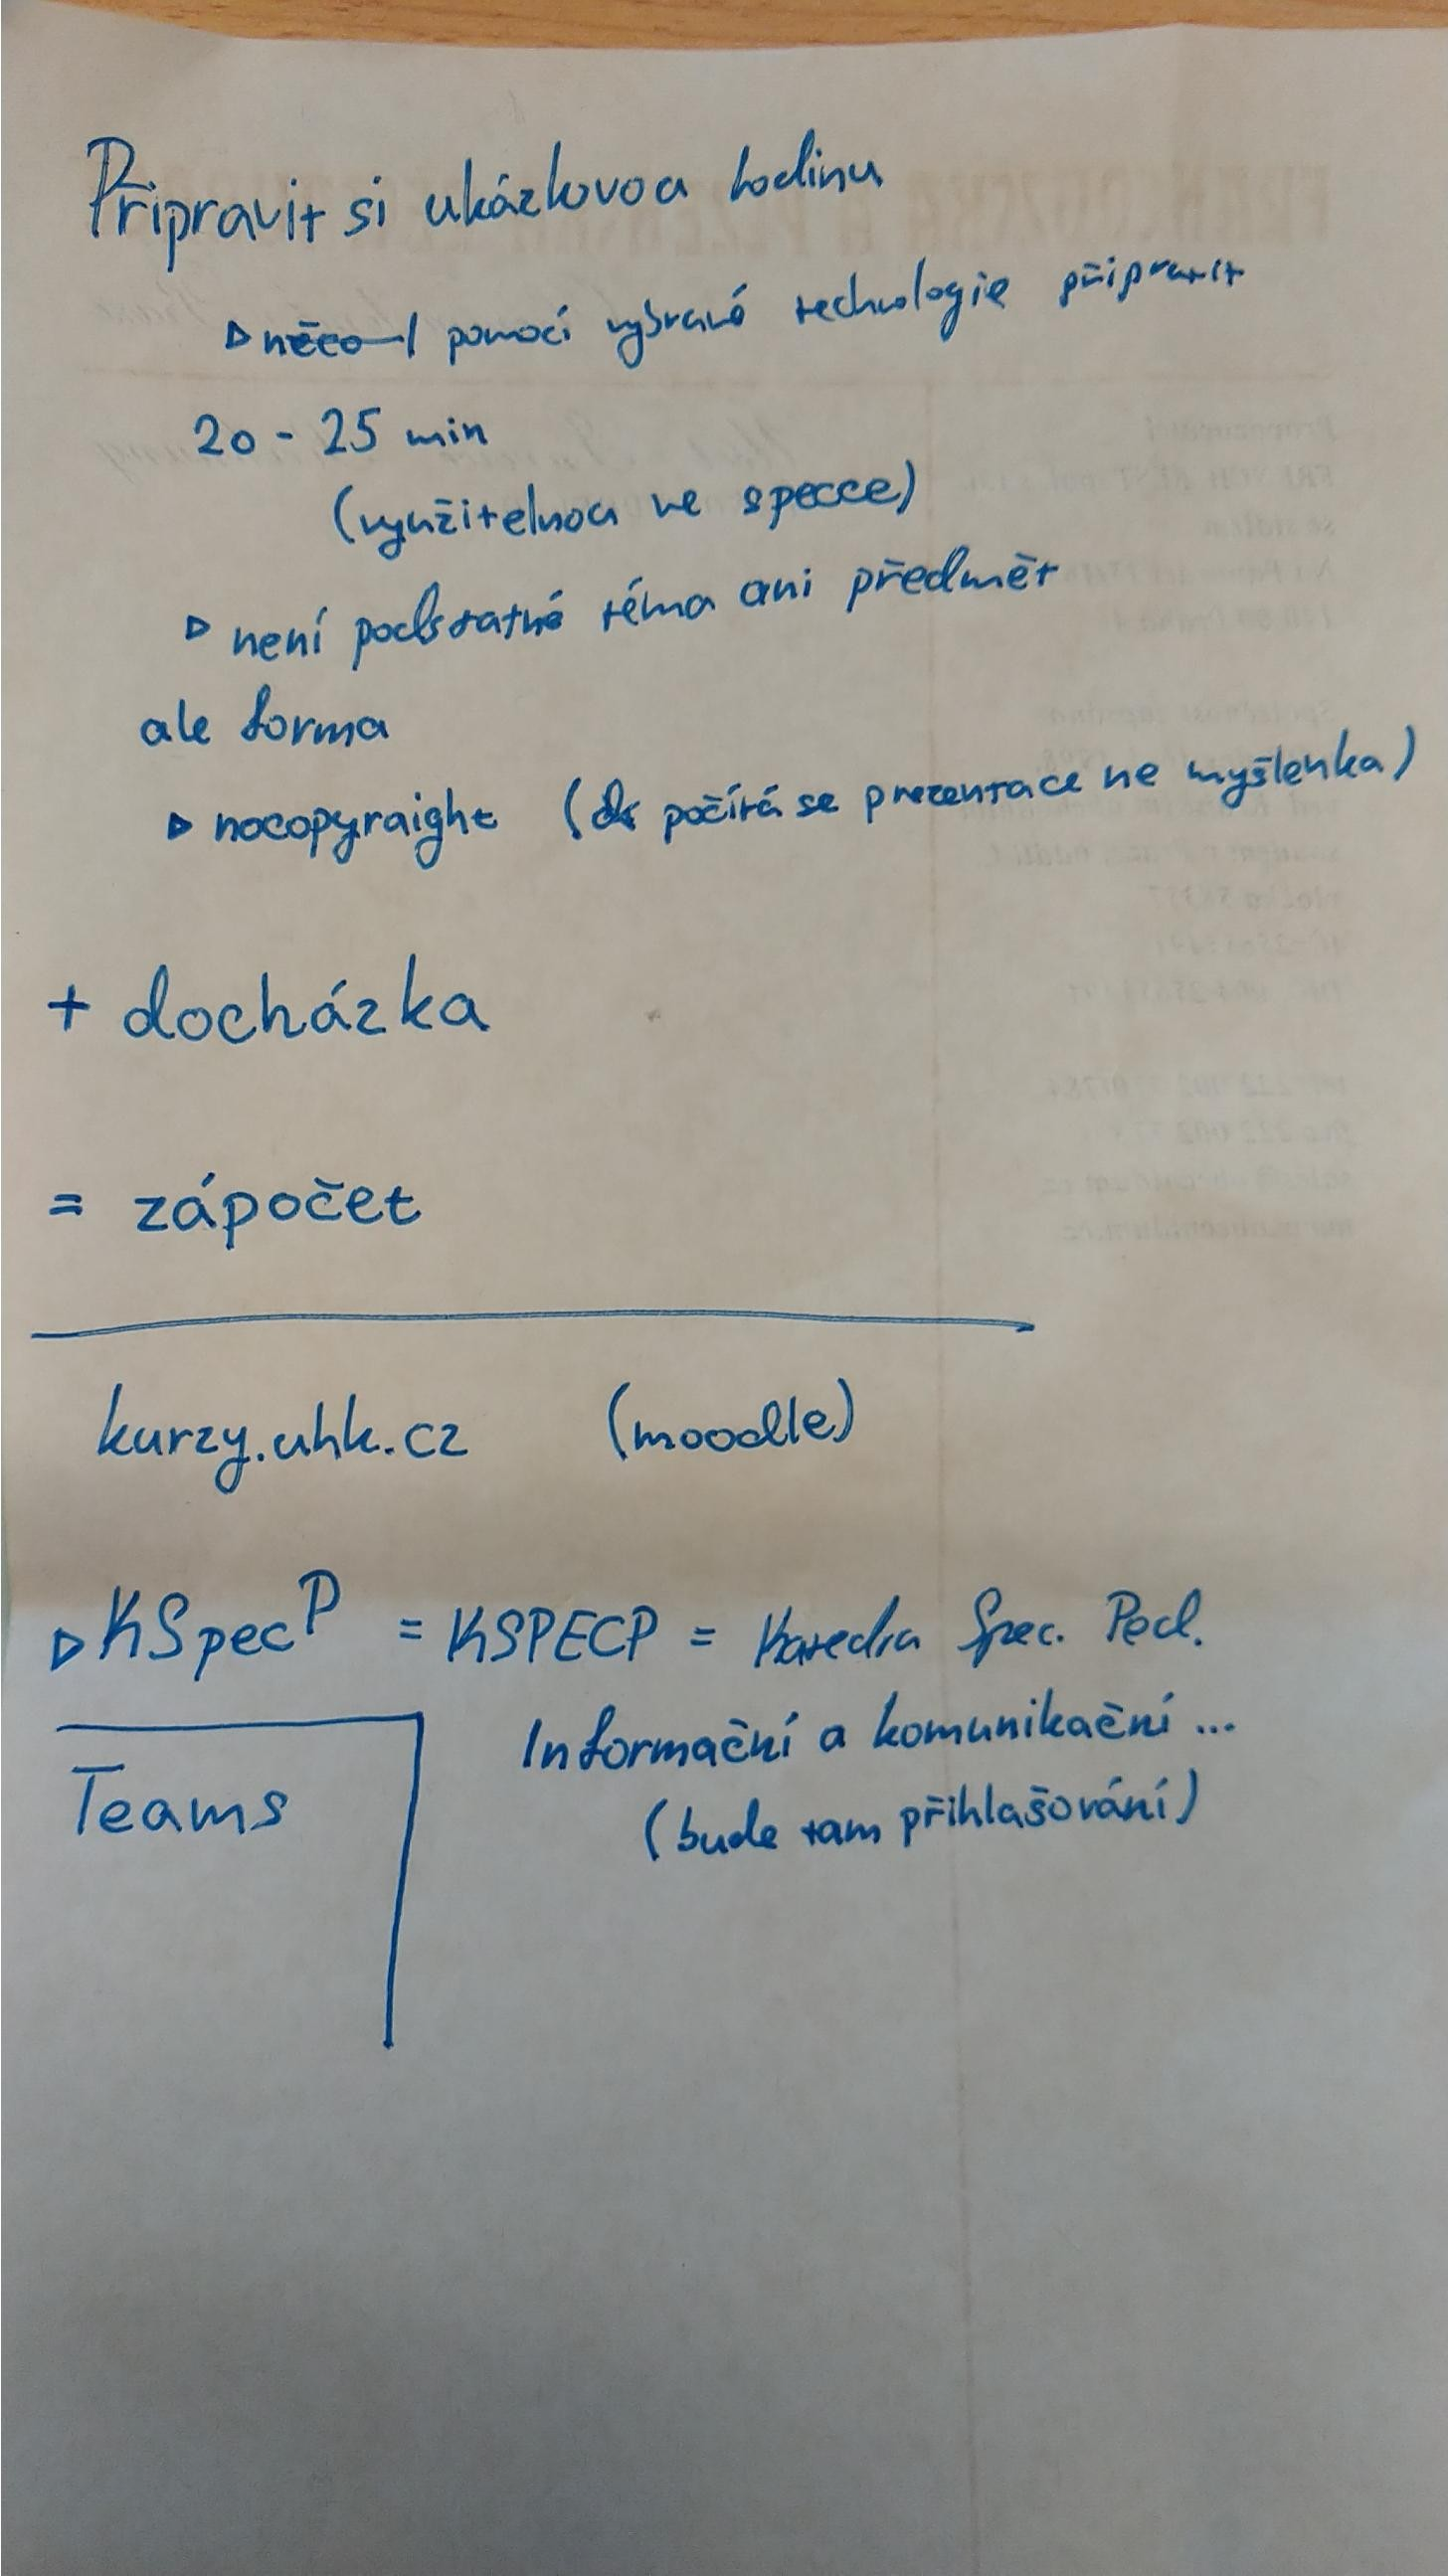 Připravit si ukázkovou hodinu
▷ něco pomocí vybrané technologie připravit
20 - 25 min
(využitelnou ve specce)
▷ není podstatné téma ani předmět
ale forma
▷ nocopyraight ( počítá se prezentace ne myšlenka)
+ docházka
= zápočet
kurzy.uhk.cz (moodle)
▷ KSpecP = KSPECP = Katedra Spec. Ped.
Informační a komunikační ...
Teams
(bude tam přihlašování)